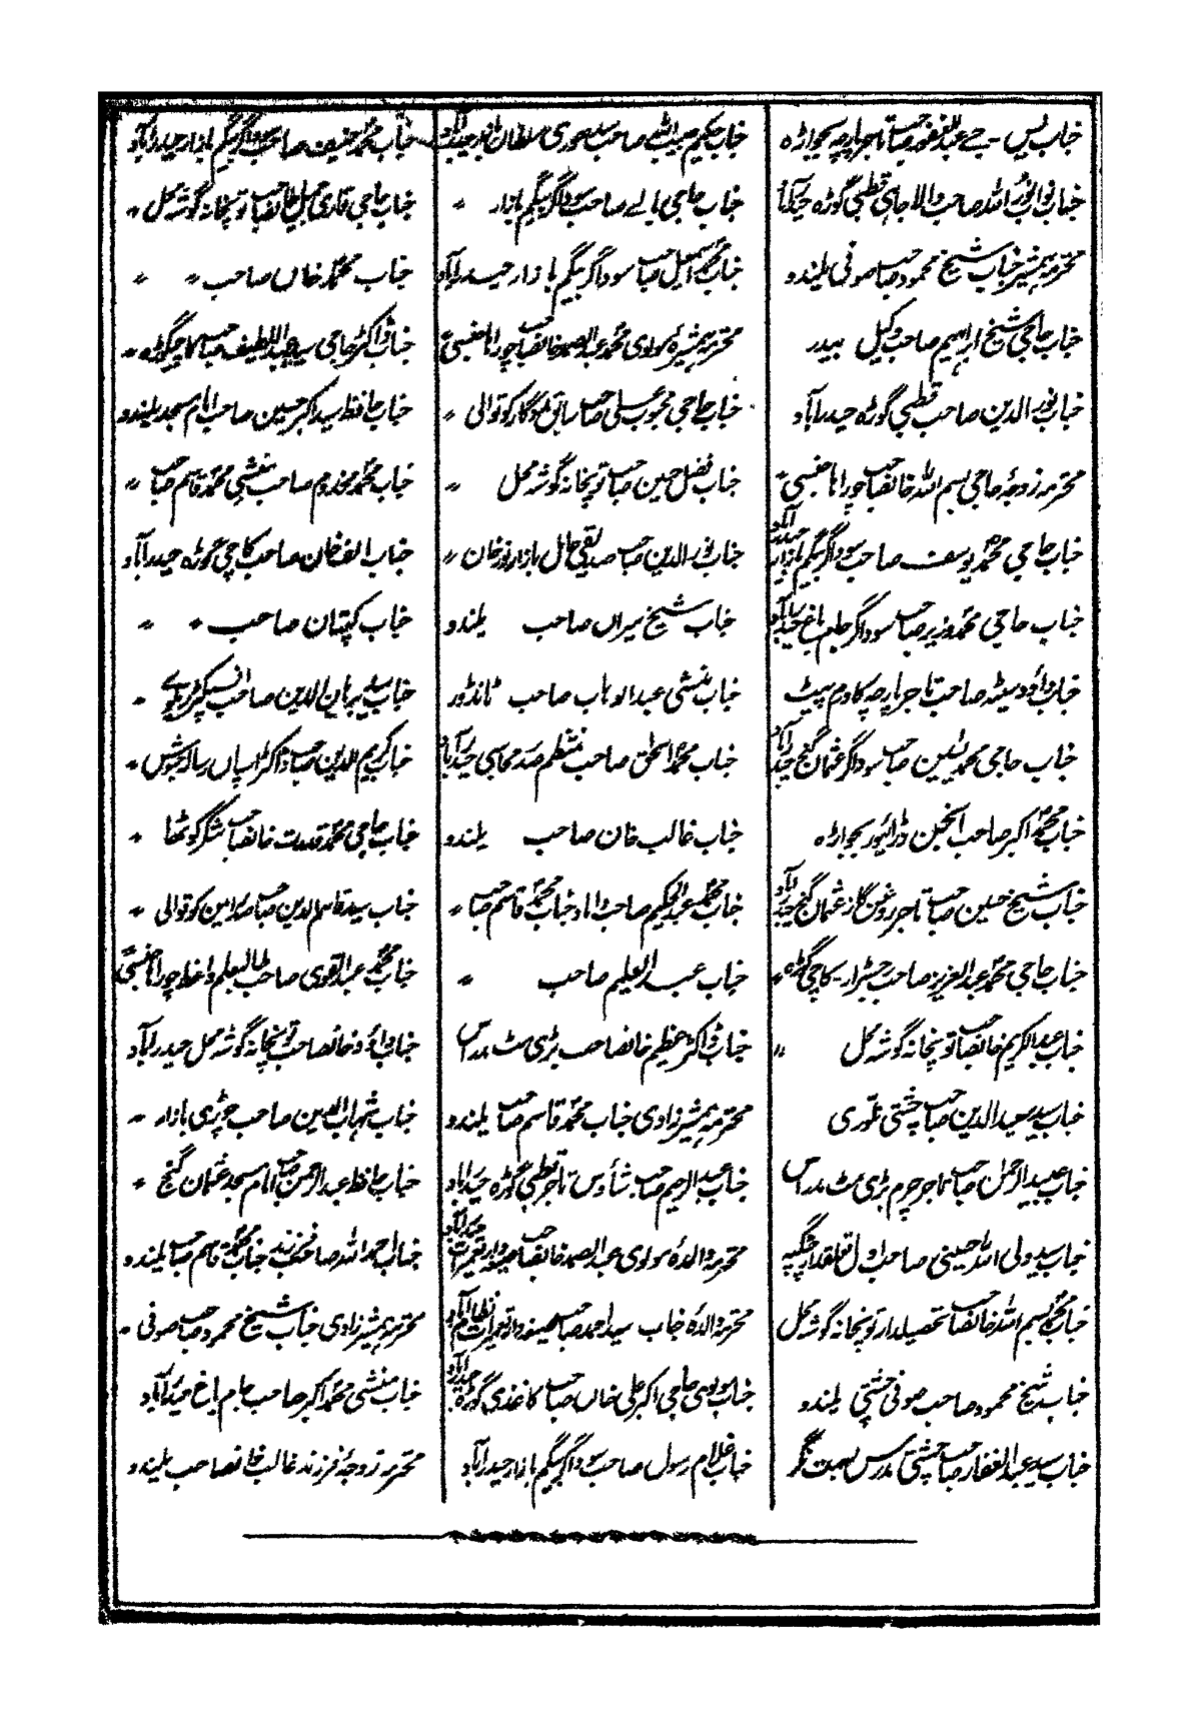 جناب یس - جے عبدالغفور صاحب تاجر پارچہ بیجواڑہ
جناب نواب نور اللہ صاحب والا جاہی قطبی گوڑہ
محترمہ ہمشیر جناب شیخ محمود صاحب صوفی یلندو
جناب حاجی شیخ ابراہیم صاحب وکیل بیدر
جناب نور الدین صاحب قطبی گوڑہ حیدرآباد
محترمہ زوجہ حاجی بسم اللہ خانصاحب
جناب حاجی محمد یوسف صاحب سوداگر بیگم بازار حیدرآباد
جناب حاجی محمد وزیر صاحب سوداگر جام باغ حیدرآباد
جناب داؤد سیٹھ صاحب تاجر پارچہ کادم پیٹ
جناب حاجی محمد یٰسین صاحب سوداگر عثمان گنج حیدرآباد
جناب محمد اکبر صاحب انجن ڈرائیور بیجواڑہ
جناب شیخ حسین صاحب تاجر روغن گاز عثمان گنج حیدرآباد
جناب حاجی محمد عبدالعزیز صاحب رجسٹرار - کاچی گوڑہ "
جناب عبدالکریم خانصاحب توپخانہ گوشہ محل "
جناب سید سعید الدین صاحب چشتی نلوری
جناب عبید الرحمٰن صاحب تاجر چرم بڑی مٹ مدراس
جناب سید ولی اللہ حسینی صاحب اول تعلقدار
جناب محمد بسم اللہ خانصاحب تحصیلدار توپخانہ گوشہ محل
جناب شیخ محمود صاحب صوفی چشتی یلندو
جناب سید عبدالغفار صاحب چشتی مدرس ہمت نگر
جناب حکیم حبیب اللہ صاحب سلطان بازار حیدرآباد
جناب حاجی بالے صاحب سوداگر بیگم بازار "
جناب محمد اسمٰعیل صاحب سوداگر بیگم بازار حیدرآباد
محترمہ ہمشیرہ مولوی محمد عبدالصمد خانصاحب
جناب حاجی محبوب علی صاحب سابق مددگار کوتوالی "
جناب فضل حسین صاحب توپخانہ گوشہ محل "
جناب نور الدین صاحب صدیقی حال بازار نور خان "
جناب شیخ میراں صاحب یلندو
جناب منشی عبدالوہاب صاحب ٹانڈور
جناب محمد اسحٰق صاحب منتظم صدر محاسبی حیدرآباد
جناب غالب خان صاحب یلندو
جناب محمد عبدالحکیم صاحب داماد جناب محمد قاسم صاحب "
جناب عبدالعلیم صاحب "
جناب ڈاکٹر عظیم خانصاحب بڑی مٹ مدراس
محترمہ ہمشیرزادی جناب محمد قاسم صاحب یلندو
جناب عبدالرحیم صاحب تاجر قطبی گوڑہ حیدرآباد
محترمہ والدہ مولوی عبدالصمد خانصاحب صیغہ دار تعمیرات حیدرآباد
محترمہ والدہ جناب سید احمد صاحب صیغہ دار تعمیرات نظام آباد
جناب مولوی حاجی اکبر علی خاں صاحب کاغذی گوڑہ حیدرآباد
جناب غلام رسول صاحب سوداگر بیگم بازار حیدرآباد
جناب محمد حنیف صاحب سوداگر بیگم بازار حیدرآباد
جناب حاجی قاری جمیل خانصاحب توپخانہ گوشہ محل "
جناب محمد خاں صاحب " "
جناب ڈاکٹر حاجی سید عبداللطیف صاحب کاچیگوڑہ "
جناب حافظ سید اکبر حسین صاحب امام مسجد یلندو
جناب محمد مخدوم صاحب منشی محمد قاسم صاحب "
جناب الف خان صاحب کاچی گوڑہ حیدرآباد
جناب کپتان صاحب " "
جناب سید برہان الدین صاحب انسپکٹر ریلوے "
جناب کریم الدین صاحب ڈاکٹر اسپاں رسالہ "
جناب حاجی محمد قدرت خانصاحب شکر کوٹھا "
جناب سید قاسم الدین صاحب صدر امین کوتوالی "
جناب محمد عبدالقوی صاحب طالبعلم
جناب داؤد خانصاحب توپخانہ گوشہ محل حیدرآباد
جناب شہاب الدین صاحب چوڑی بازار "
جناب حافظ عبدالرحمٰن صاحب امام مسجد عثمان گنج "
جناب احمد اللہ صاحب فرزند جناب محمد قاسم صاحب یلندو
محترمہ ہمشیرزادی جناب شیخ محمود صاحب صوفی "
جناب منشی محمد اکبر صاحب جام باغ حیدرآباد
محترمہ زوجہ فرزند غالب خانصاحب یلندو